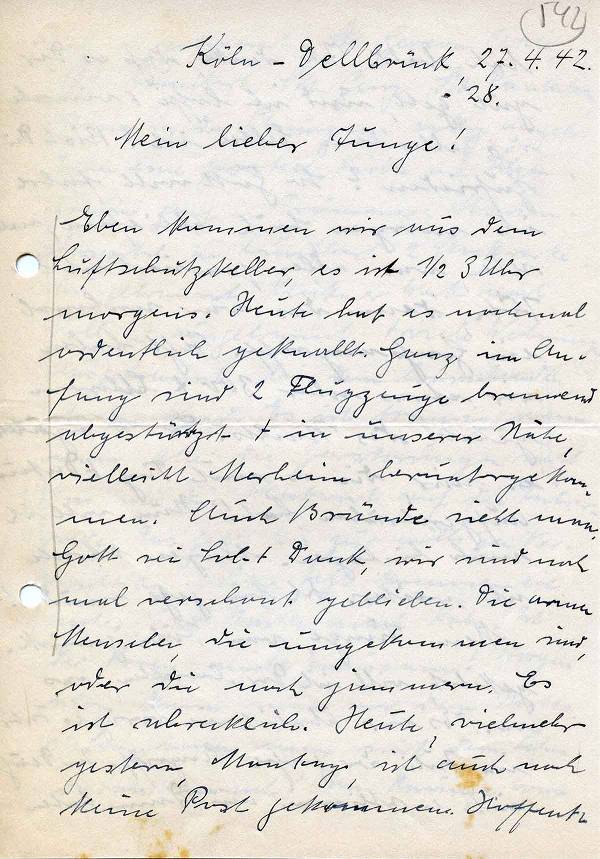 542
Köln-Dellbrück 27.4.42.
-'28.
Mein lieber Junge!
Eben kommen wir aus dem
Luftschutzkeller, es ist 1/2 3 Uhr
morgens. Heute hat es nochmal
ordentlich geknallt. Ganz im An-
fang sind 2 Flugzeuge brennend
abgestürzt + in unserer Nähe,
vielleicht Merheim heruntergekom-
men. Auch Brände sieht man.
Gott sei Lob + Dank, wir sind noch
mal verschont geblieben. Die armen
Menschen, die umgekommen sind,
oder die noch jammern. Es
ist schrecklich. Heute, vielmehr
gestern, Montag, ist auch noch
keine Post gekommen. Hoffentl.